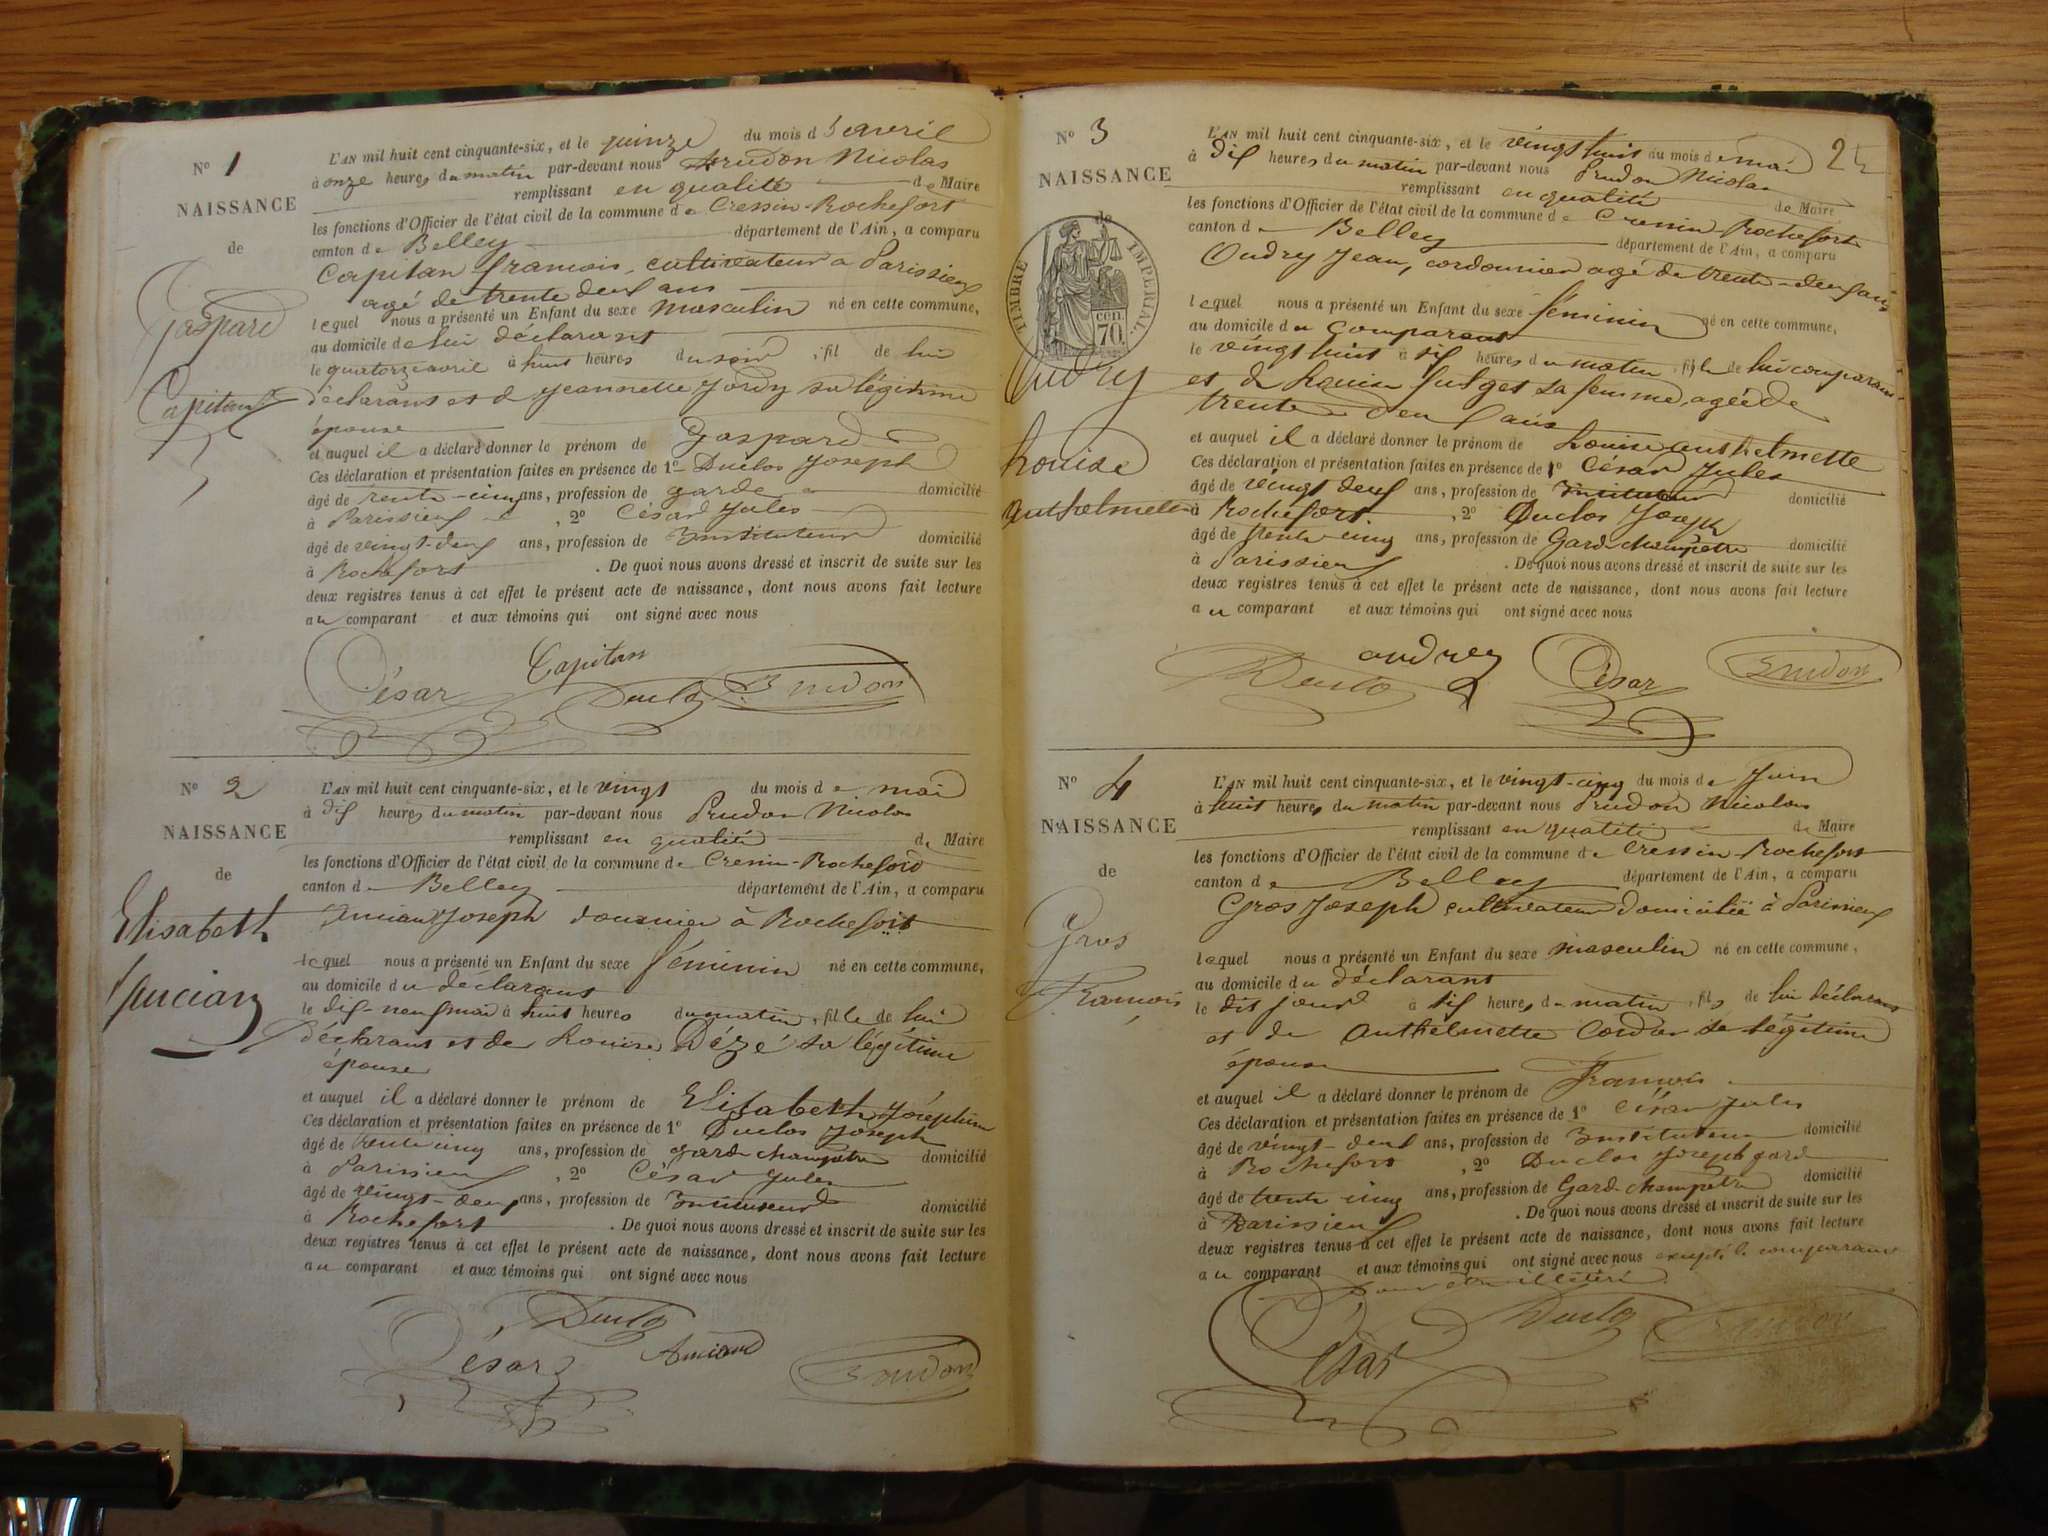 N° 1
NAISSANCE
de
Gaspard
Capitan
L'AN mil huit cent cinquante-six, et le quinze du mois d'avril
à onze heures du matin par-devant nous Prudon Nicolas
remplissant en qualité de Maire
les fonctions d'Officier de l'état civil de la commune de Cressin-Rochefort
canton de Belley département de l'Ain, a comparu
Capitan francois, cultivateur a Parissieu
agé de trente deux ans
lequel nous a présenté un Enfant du sexe masculin né en cette commune,
au domicile de lui déclarant
le quatorze avril à huit heures du soir, fil de lui
déclarant et de Jeannette Jordy sa légitime
épouse
et auquel il a déclaré donner le prénom de Gaspard
Ces déclaration et présentation faites en présence de 1° Duclos Joseph
âgé de trente-cinq ans, profession de garde domicilié
à Parissieu, 2° César Jules
âgé de vingt-deux ans, profession de Instituteur domicilié
à Rochefort. De quoi nous avons dressé et inscrit de suite sur les
deux registres tenus à cet effet le présent acte de naissance, dont nous avons fait lecture
au comparant et aux témoins qui ont signé avec nous
Capitan
César Duclos Prudon
N° 2
NAISSANCE
de
Elisabeth
Ancian
L'AN mil huit cent cinquante-six, et le vingt du mois de mai
à dix heures du matin par-devant nous Prudon Nicolas
remplissant en qualité de Maire
les fonctions d'Officier de l'état civil de la commune de Cressin-Rochefort
canton de Belley département de l'Ain, a comparu
Ancian Joseph douanier à Rochefort
lequel nous a présenté un Enfant du sexe féminin né en cette commune,
au domicile du déclarant
le dix-neuf mai à huit heures du matin, fille de lui
déclarant et de Louise Dézé sa légitime
épouse
et auquel il a déclaré donner le prénom de Elisabeth Joséphine
Ces déclaration et présentation faites en présence de 1° Duclos Joseph
âgé de trente cinq ans, profession de garde champêtre domicilié
à Parissieu, 2° César Jules
âgé de vingt-deux ans, profession de Instituteur domicilié
à Rochefort. De quoi nous avons dressé et inscrit de suite sur les
deux registres tenus à cet effet le présent acte de naissance, dont nous avons fait lecture
au comparant et aux témoins qui ont signé avec nous
Duclos
César Ancian Prudon
N° 3
NAISSANCE
de
TIMBRE IMPERIAL.
70 cen.
Oudry
Louise
Anthelmette
L'AN mil huit cent cinquante-six, et le vingt huit du mois de mai
à dix heures du matin par-devant nous Prudon Nicolas
remplissant en qualité de Maire
les fonctions d'Officier de l'état civil de la commune de Cressin-Rochefort
canton de Belley département de l'Ain, a comparu
Oudry Jean, cordonnier agé de trente-deux ans
lequel nous a présenté un Enfant du sexe féminin né en cette commune,
au domicile du comparant
le vingt huit à six heures du matin, fille de lui comparant
et de Louise sa femme, agée de
trente deux ans
et auquel il a déclaré donner le prénom de Louise anthelmette
Ces déclaration et présentation faites en présence de 1° César Jules
âgé de vingt deux ans, profession de Instituteur domicilié
à Rochefort, 2° Duclos Joseph
âgé de trente-cinq ans, profession de Garde champêtre domicilié
à Parissieu. De quoi nous avons dressé et inscrit de suite sur les
deux registres tenus à cet effet le présent acte de naissance, dont nous avons fait lecture
au comparant et aux témoins qui ont signé avec nous
Duclos oudrey César Prudon
N° 4
NAISSANCE
de
Gros
Francois
L'AN mil huit cent cinquante-six, et le vingt-cinq du mois de Juin
à huit heures du matin par-devant nous Prudon Nicolas
remplissant en qualité de Maire
les fonctions d'Officier de l'état civil de la commune de Cressin-Rochefort
canton de Belley département de l'Ain, a comparu
Gros Joseph cultivateur domicilié à Parissieu
lequel nous a présenté un Enfant du sexe masculin né en cette commune,
au domicile du déclarant
le dit jour à six heures du matin, fils de lui déclarant
et de Anthelmette Cordon sa légitime
épouse
et auquel il a déclaré donner le prénom de Francois
Ces déclaration et présentation faites en présence de 1° César Jules
âgé de vingt-deux ans, profession de Instituteur domicilié
à Rochefort, 2° Duclos Joseph gard
âgé de trente cinq ans, profession de Garde champêtre domicilié
à Parissieu. De quoi nous avons dressé et inscrit de suite sur les
deux registres tenus à cet effet le présent acte de naissance, dont nous avons fait lecture
au comparant et aux témoins qui ont signé avec nous excepté le comparant
pour être illétéré
César Duclos Prudon